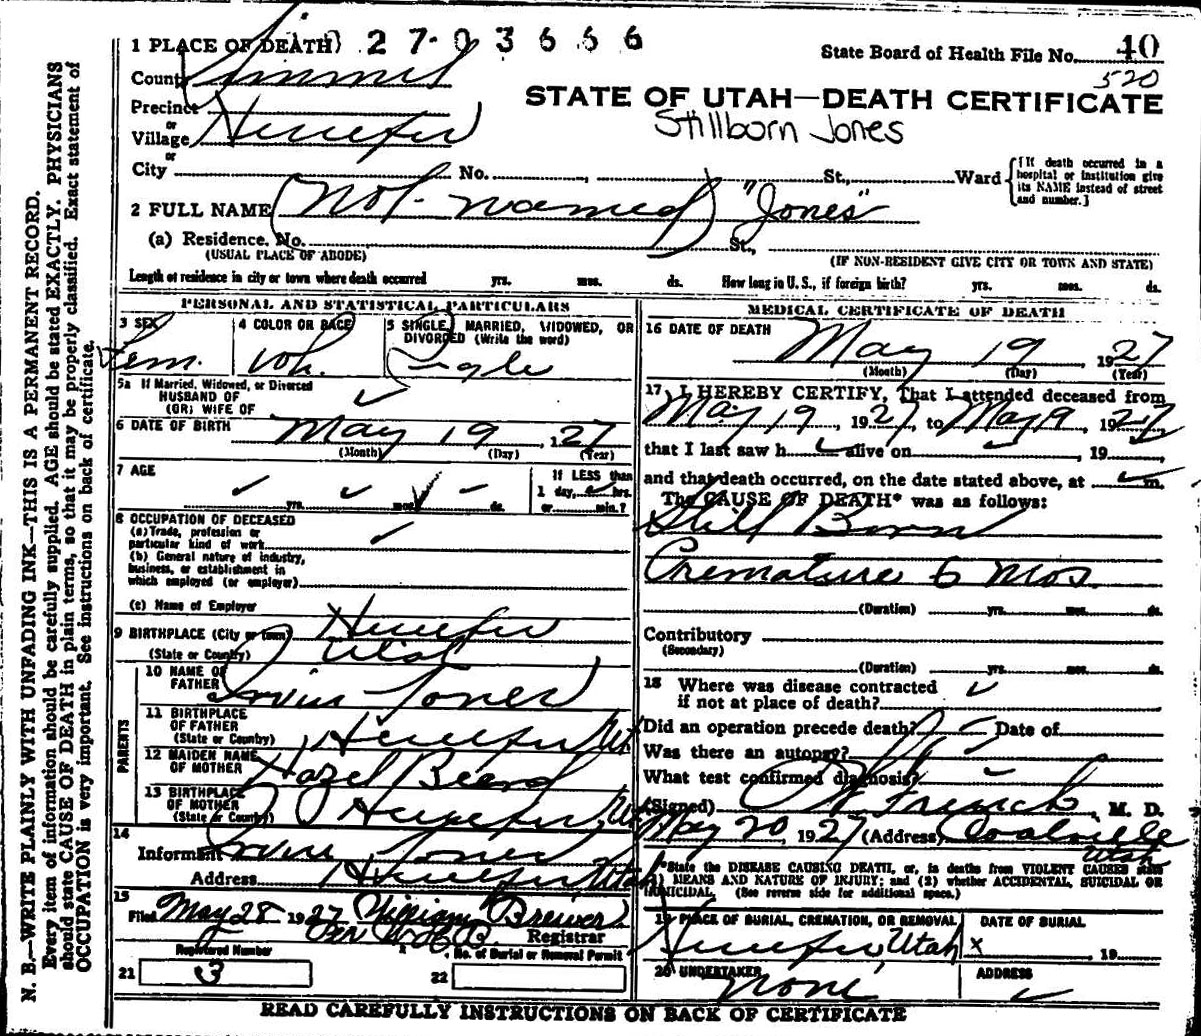 1 PLACE OF DEATH) 27-03666
State Board of Health File No. 40
520
County Summit
STATE OF UTAH—DEATH CERTIFICATE
Stillborn Jones
Precinct
or
Village Henefer
or
City No. St., Ward {[If death occurred in a hospital or institution give its NAME instead of street and number.]
2 FULL NAME (Not named) "Jones"
(a) Residence. No. St.,
(USUAL PLACE OF ABODE) (IF NON-RESIDENT GIVE CITY OR TOWN AND STATE)
Length of residence in city or town where death occurred yrs. mos. ds. How long in U. S., if foreign birth? yrs. mos. ds.
PERSONAL AND STATISTICAL PARTICULARS
3 SEX 4 COLOR OR RACE 5 SINGLE, MARRIED, WIDOWED, OR
DIVORCED (Write the word)
Fem. Wh. Single
5a If Married, Widowed, or Divorced
HUSBAND OF
(OR) WIFE OF
6 DATE OF BIRTH May 19, 1927
(Month) (Day) (Year)
7 AGE If LESS than
1 day, hrs.
yrs. mos. ds. or min.?
8 OCCUPATION OF DECEASED
(a) Trade, profession or
particular kind of work
(b) General nature of industry,
business, or establishment in
which employed (or employer)
(c) Name of Employer
9 BIRTHPLACE (City or town) Henefer
(State or Country) Utah
PARENTS
10 NAME OF
FATHER Irvin Jones
11 BIRTHPLACE
OF FATHER
(State or Country) Henefer, Ut
12 MAIDEN NAME
OF MOTHER Hazel Beard
13 BIRTHPLACE
OF MOTHER
(State or Country) Henefer, Ut
14
Informant Irvin Jones
Address Henefer Utah
15
Filed May 28 1927 William Brewer
Per Registrar
Registered Number No. of Burial or Removal Permit
21 3 22
MEDICAL CERTIFICATE OF DEATH
16 DATE OF DEATH
May 19, 1927
(Month) (Day) (Year)
17 I HEREBY CERTIFY, That I attended deceased from
May 19, 1927, to May 9, 1927
that I last saw h alive on , 19
and that death occurred, on the date stated above, at m.
The CAUSE OF DEATH* was as follows:
Still Born
Premature 6 mos.
(Duration) yrs. mos. ds.
Contributory
(Secondary)
(Duration) yrs. mos. ds.
18 Where was disease contracted
if not at place of death?
Did an operation precede death? Date of
Was there an autopsy?
What test confirmed diagnosis?
(Signed) French, M. D.
May 20, 1927 (Address) Coalville
Utah
*State the DISEASE CAUSING DEATH, or, in deaths from VIOLENT CAUSES state
(1) MEANS AND NATURE OF INJURY; and (2) whether ACCIDENTAL, SUICIDAL OR
HOMICIDAL. (See reverse side for additional space.)
19 PLACE OF BURIAL, CREMATION, OR REMOVAL DATE OF BURIAL
Henefer, Utah x , 19
20 UNDERTAKER ADDRESS
None
READ CAREFULLY INSTRUCTIONS ON BACK OF CERTIFICATE
N. B.—WRITE PLAINLY WITH UNFADING INK—THIS IS A PERMANENT RECORD.
Every item of information should be carefully supplied. AGE should be stated EXACTLY. PHYSICIANS
should state CAUSE OF DEATH in plain terms, so that it may be properly classified. Exact statement of
OCCUPATION is very important. See instructions on back of certificate.